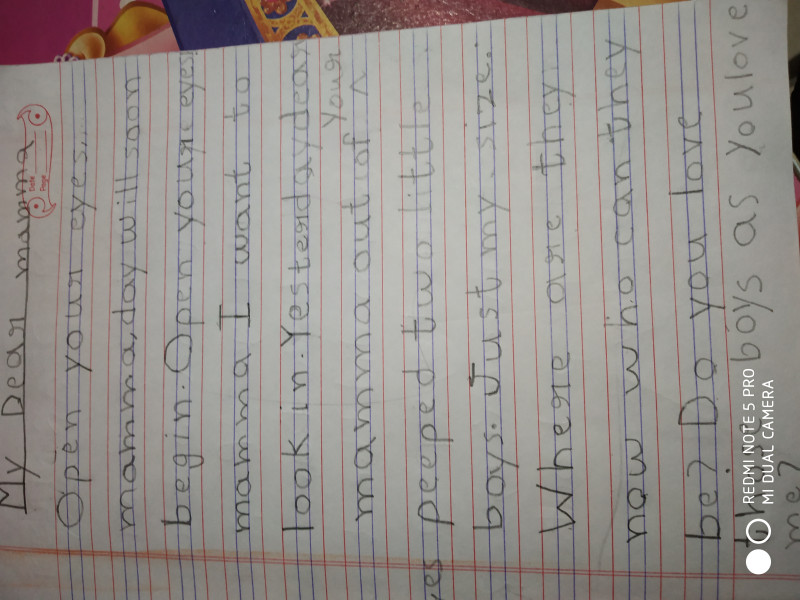 My Dear mamma
Date
Page
Open your eyes...
mamma, day will soon
begin. Open your eyes!
mamma I want to
look in. Yesterday dear
your
mamma out of ^
yes peeped two little
boys. Just my size.
Where are they
now who can they
be? Do you love
boys as you love
me?
REDMI NOTE 5 PRO
MI DUAL CAMERA